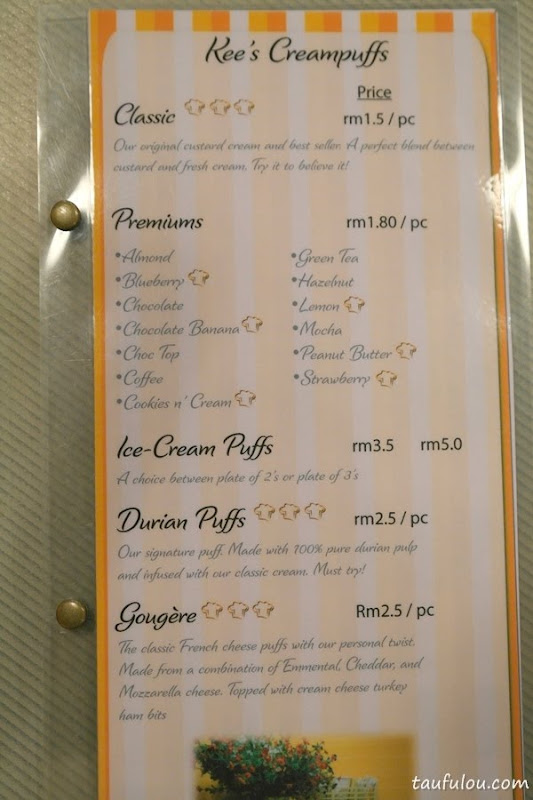 Kee's Creampuffs
Price
Classic rm1.5 / pc
Our original custard cream and best seller. A perfect blend between
custard and fresh cream. Try it to believe it!
Premiums rm1.80 / pc
•Almond •Green Tea
•Blueberry •Hazelnut
•Chocolate •Lemon
•Chocolate Banana •Mocha
•Choc Top •Peanut Butter
•Coffee •Strawberry
•Cookies n' Cream
Ice-Cream Puffs rm3.5 rm5.0
A choice between plate of 2's or plate of 3's
Durian Puffs rm2.5 / pc
Our signature puff. Made with 100% pure durian pulp
and infused with our classic cream. Must try!
Gougère Rm2.5 / pc
The classic French cheese puffs with our personal twist.
Made from a combination of Emmental, Cheddar, and
Mozzarella cheese. Topped with cream cheese turkey
ham bits
taufulou.com